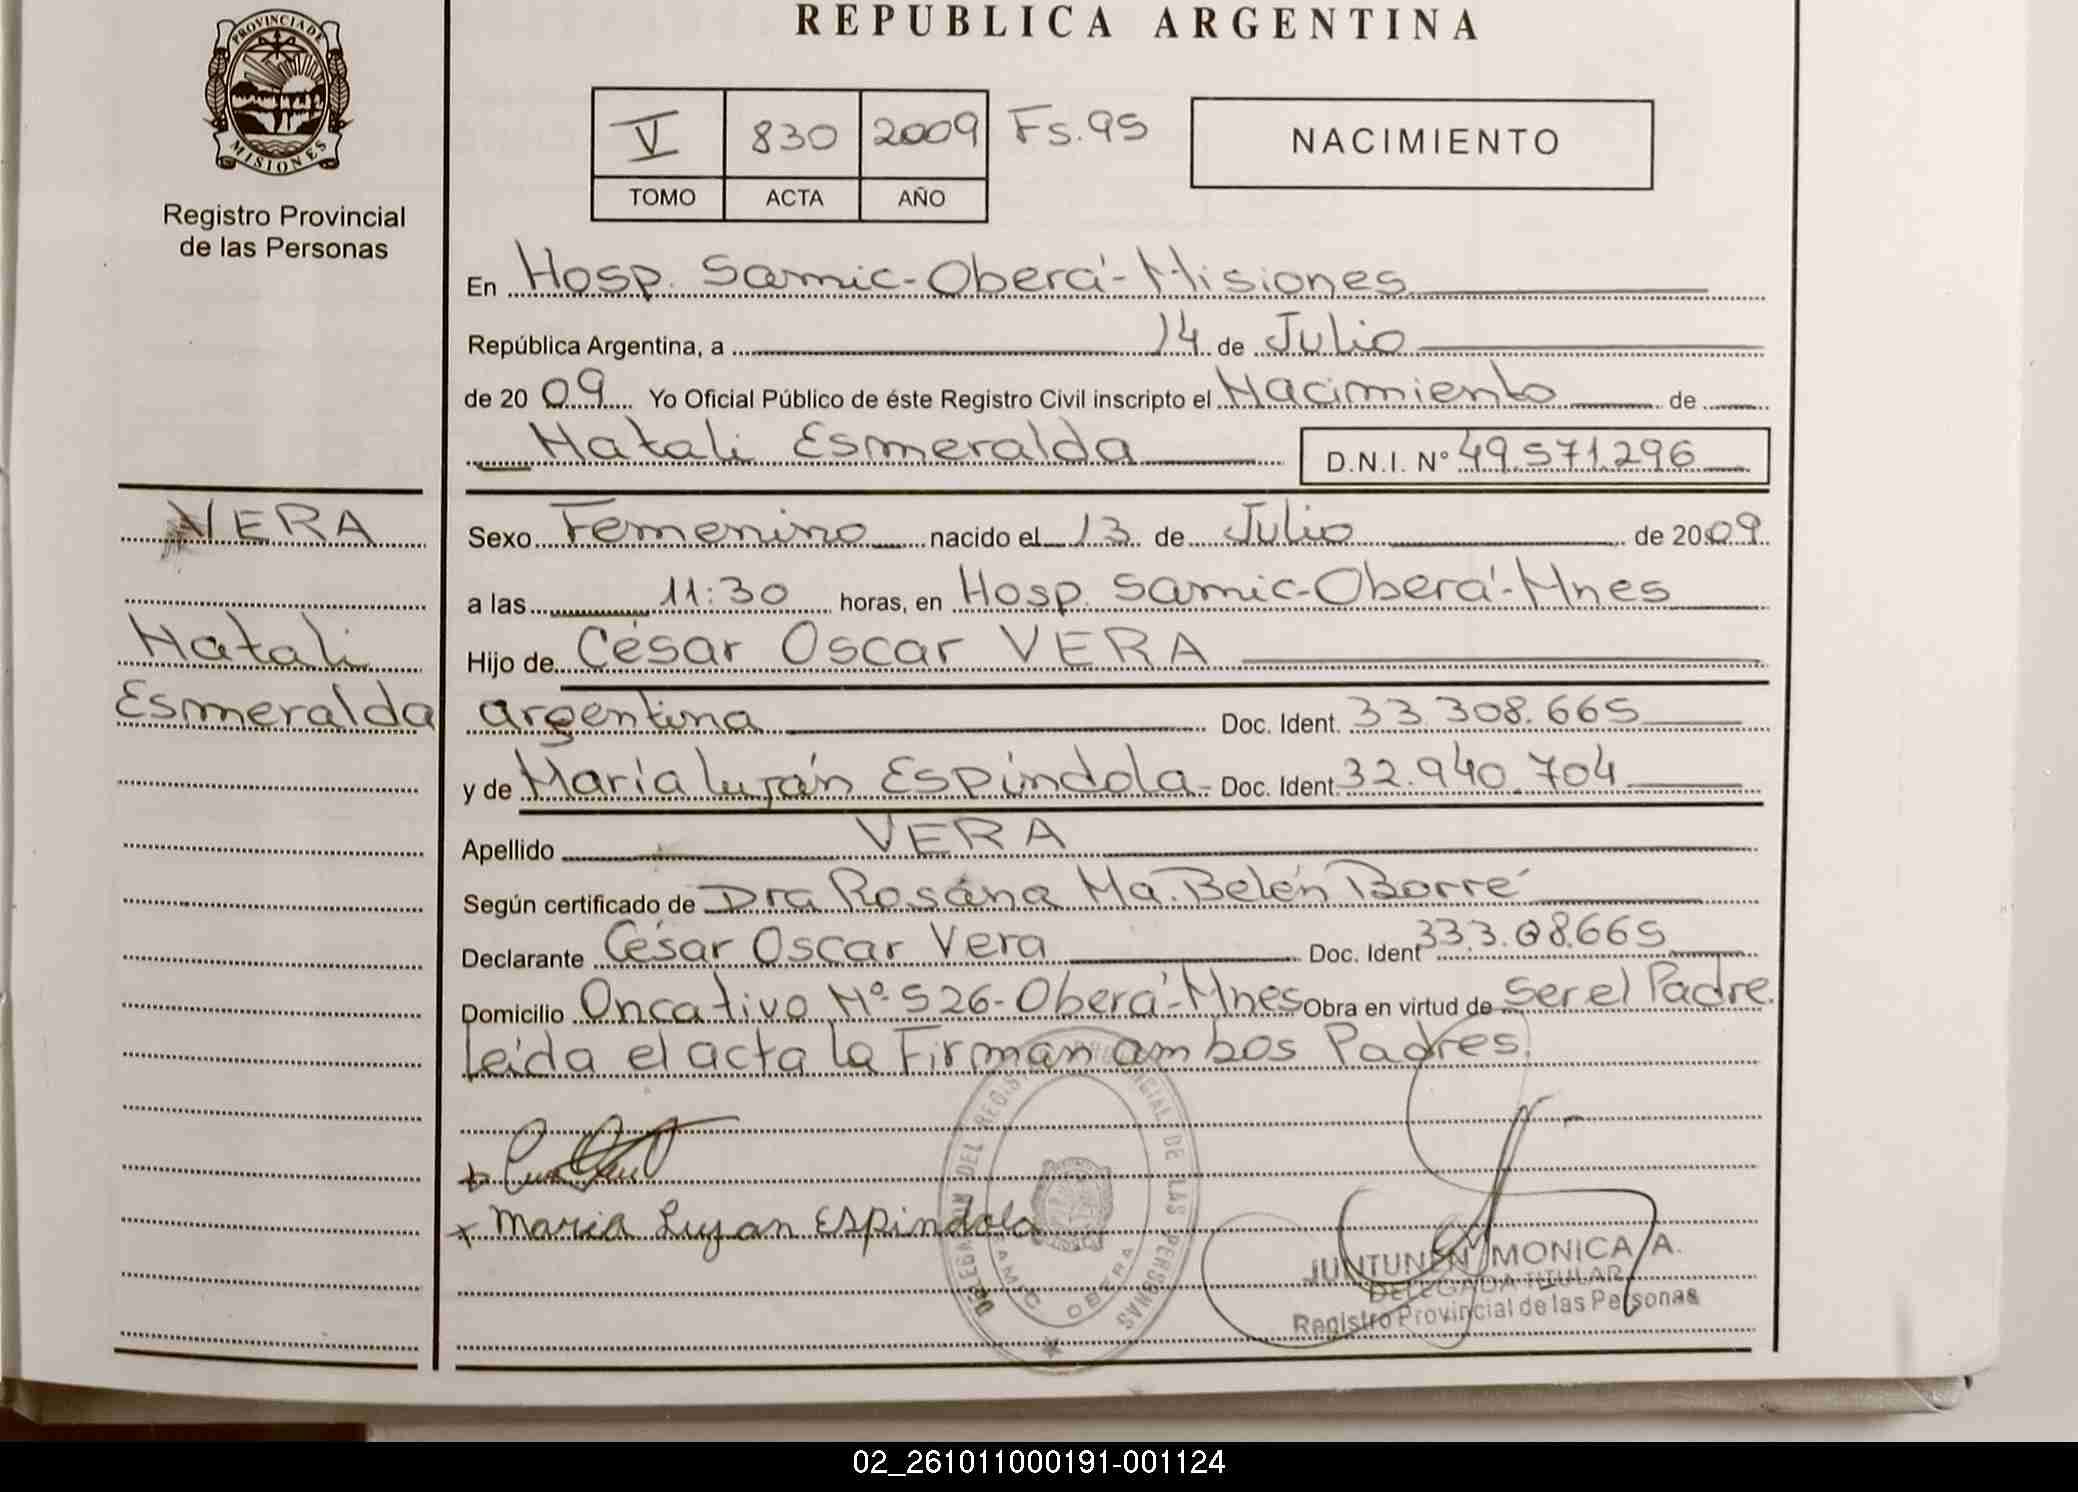 REPUBLICA ARGENTINA
PROVINCIA DE
MISIONES
Registro Provincial
de las Personas
V 830 2009 Fs.95
TOMO ACTA AÑO
NACIMIENTO
En Hosp. Samic-Oberá-Misiones
República Argentina, a 14 de Julio
de 2009 Yo Oficial Público de éste Registro Civil inscripto el Nacimiento de
Natali Esmeralda D.N.I. Nº 49.571.296
VERA
Natali
Esmeralda
Sexo Femenino nacido el 13 de Julio de 2009
a las 11:30 horas, en Hosp. Samic-Oberá-Mnes
Hijo de César Oscar VERA
argentina Doc. Ident. 33.308.665
y de María luján Espíndola- Doc. Ident. 32.940.704
Apellido VERA
Según certificado de Dra Rosána Ma. Belén Borré
Declarante César Oscar Vera Doc. Ident 33.3.08.665
Domicilio Oncativo Nº 526-Oberá-Mnes Obra en virtud de Ser el Padre.
leída el acta la Firman ambos Padres.
Maria Lujan Espindola
DELEGACION DEL REGISTRO PROVINCIAL DE LAS PERSONAS
SAMIC OBERA
JUNTUNEN MONICA A.
DELEGADA TITULAR
Registro Provincial de las Personas
02_261011000191-001124